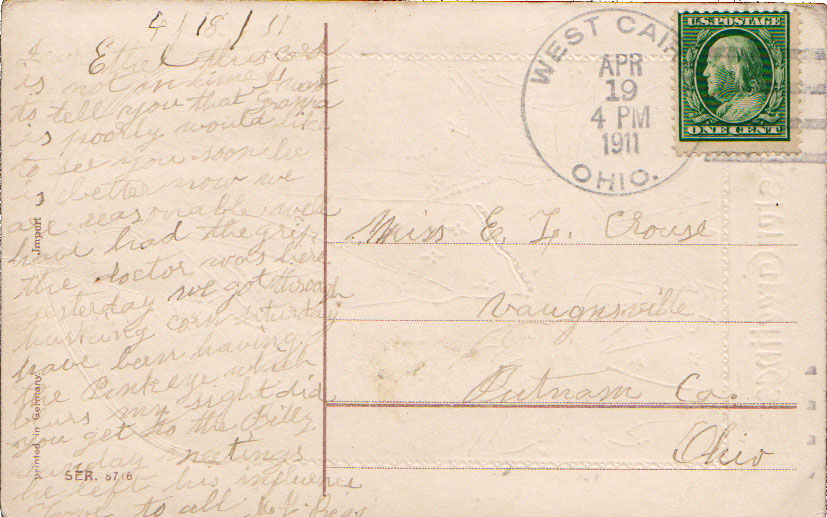 4/18/11
Dear Ethel this card
is not in time I want
to tell you that Grama
is poorly would like
to see you soon he
is better now we
are reasonable well
have had the grip
the doctor was here
yesterday we got through
husking corn Saturday
have been having
the Pinkeye which
my sight did
you get to the Billy
Sunday meetings
he left his influence
Love to all
Import
printed in Germany
SER. 8716
WEST CAIR
APR
19
4 PM
1911
OHIO.
U.S. POSTAGE
ONE CENT
Miss E. L. Crouse
Vaugnsville
Putnam Co.
Ohio